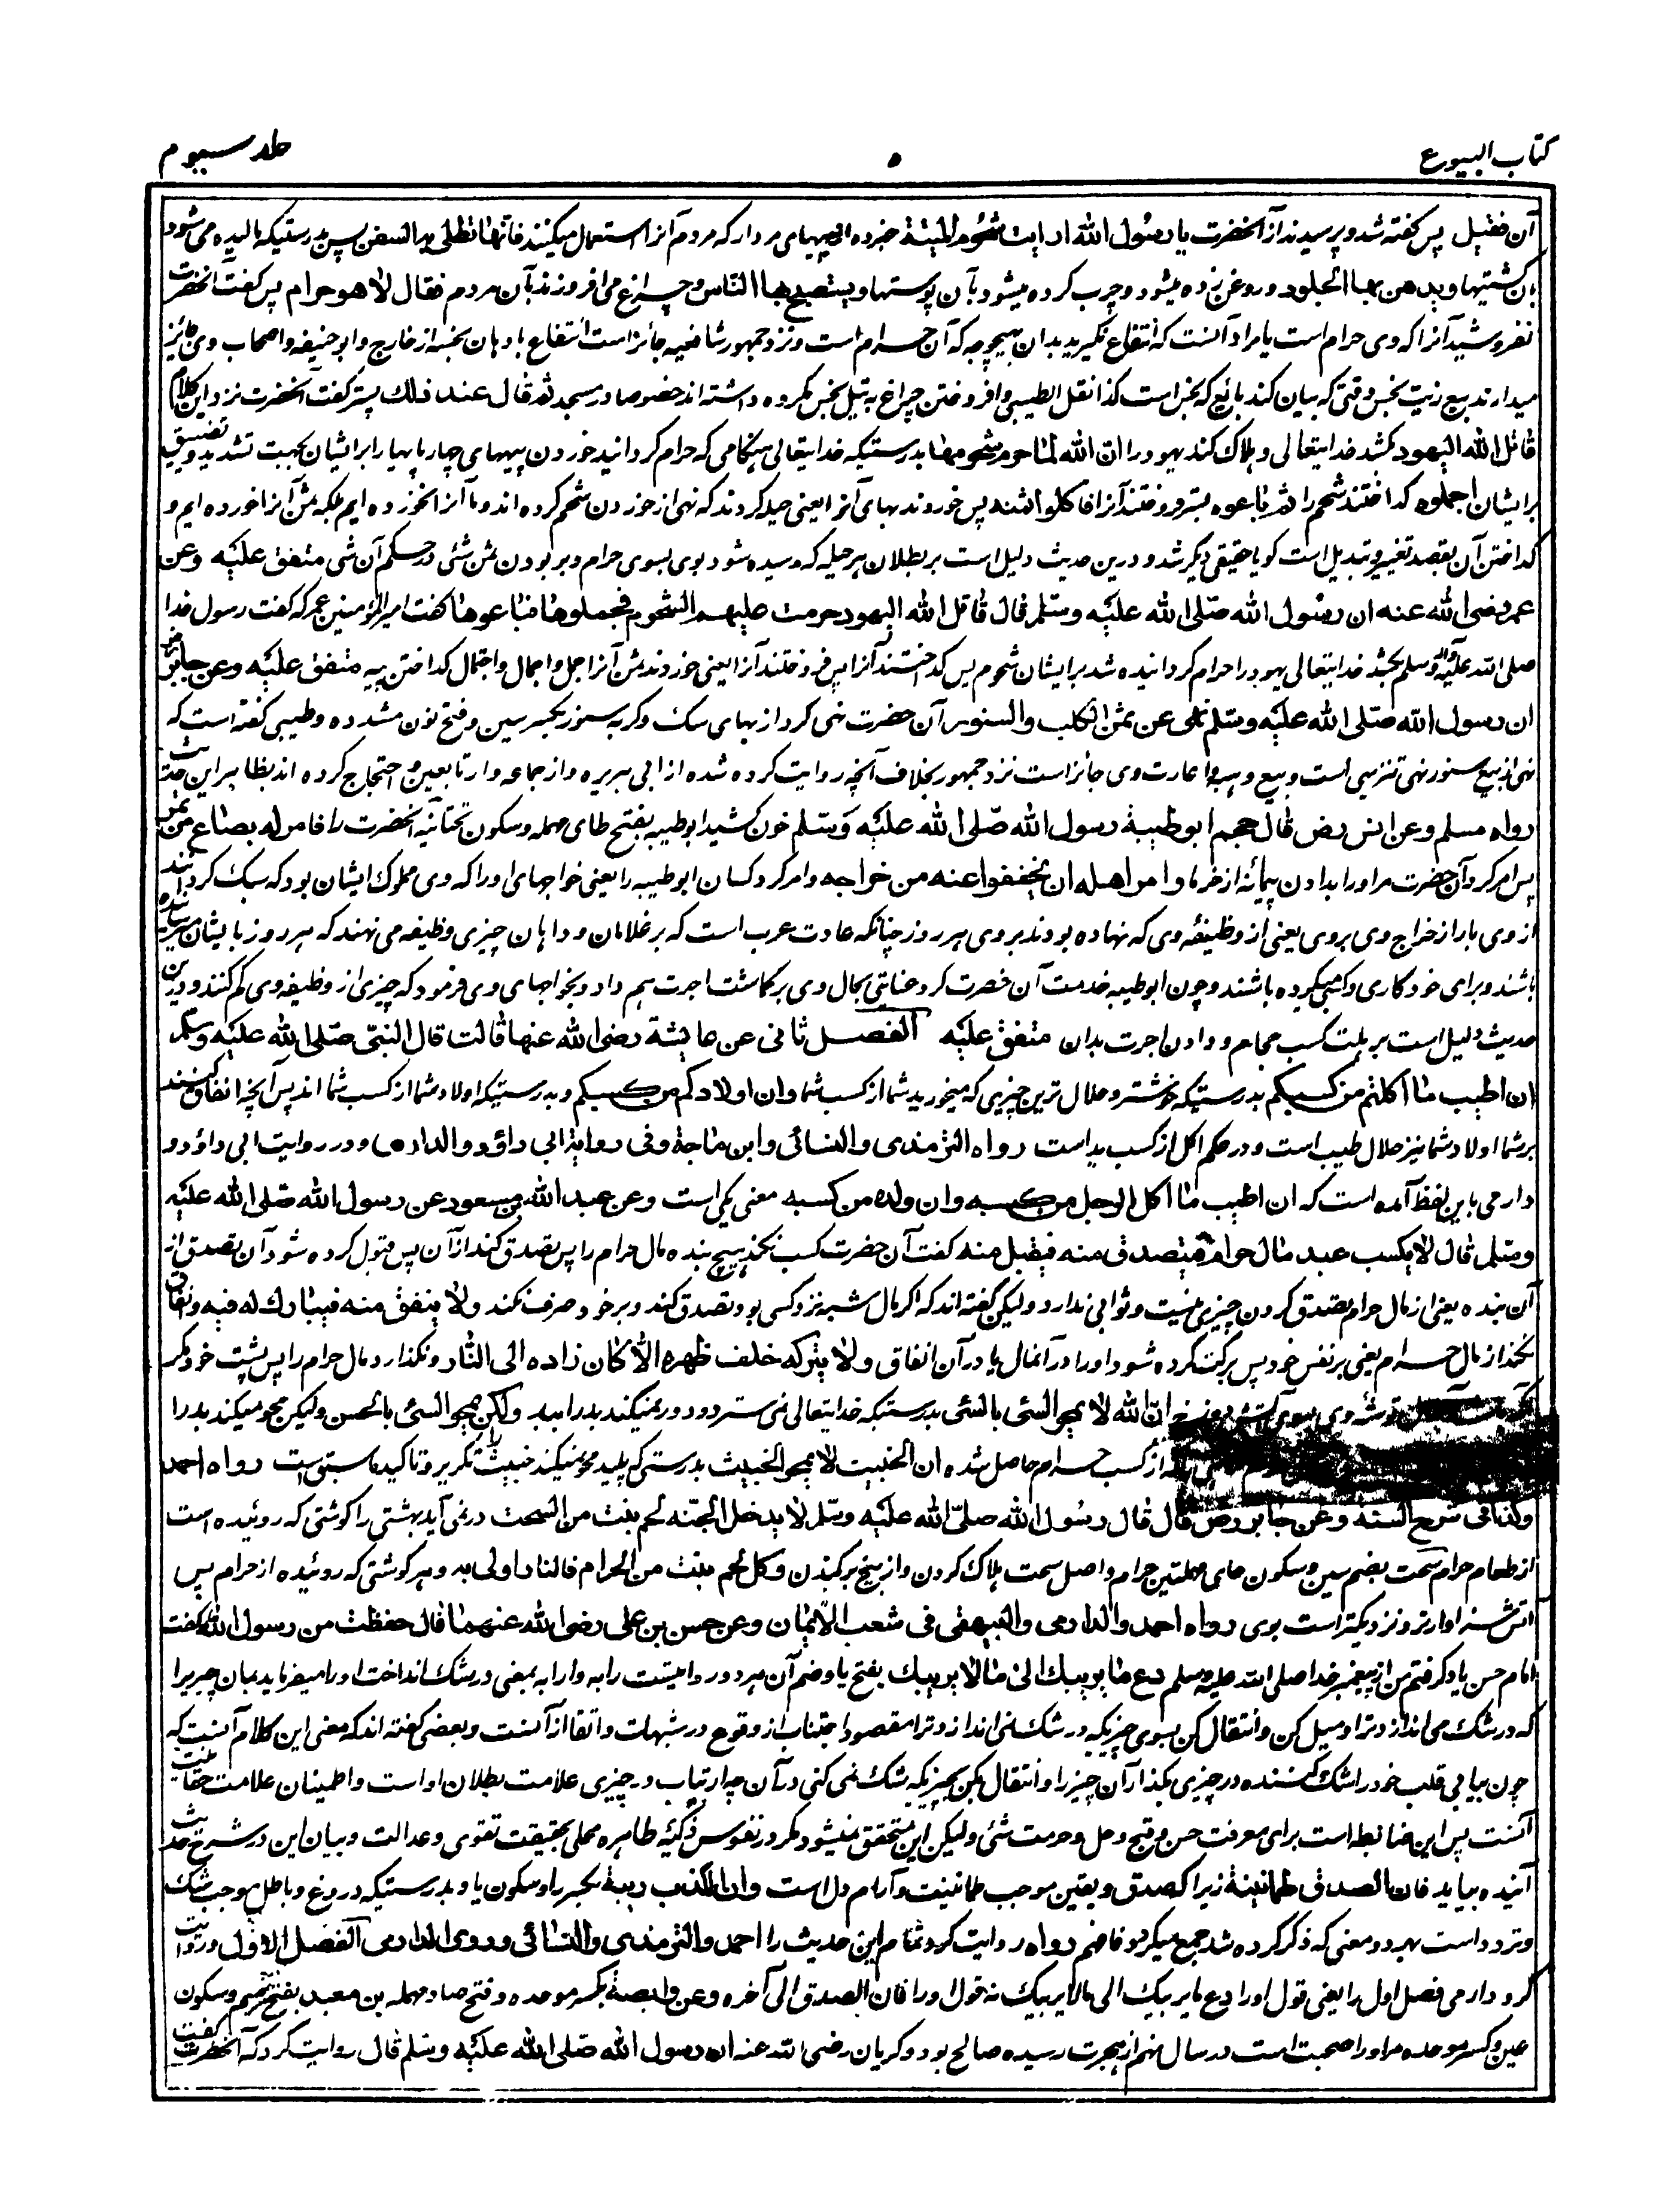 کتاب البیوع
۵
جلد سیوم
آن فقیل پس گفته شد و پرسیدند از آنحضرت یا رسول الله ارایت شحوم المیتة خبر ده از پیههای مردار که مردم آنرا استعمال میکنند فانها تطلی بها السفن پس بدرستیکه مالیده می شود
بآن کشتیها ویدهن بها الجلود و روغن زده میشود و چرب کرده میشود بآن پوستها ویستصبح بها الناس و چراغ می افروزند بآن مردم فقال لا هو حرام پس گفت آنحضرت
نفروشید آنرا که وی حرام است یا مراد آنست که انتفاع نگیرید بدان بهیچ وجه که آن حرام است و نزد جمهور شافعیه جائز است انتفاع بادهان نجسه از خارج و ابو حنیفه و اصحاب وی جائز
میدارند بیع زیت نجس وقتی که بیان کند بائع که نجس است کذا نقل الطیبی و افروختن چراغ به تیل نجس مکروه داشته اند خصوصا در مسجد ثم قال عند ذلك پستر گفت آنحضرت نزد این کلام
قاتل الله الیهود بکشد خدایتعالی و هلاک کند یهود را ان الله لما حرم شحومها بدرستیکه خدایتعالی هنگامی که حرام گردانید خوردن پیههای چارپایها را بر ایشان بجهت تشدید و تضییق
بر ایشان اجملوه گداختند شحم را ثم باعوه پستر فروختند آنرا فاکلوا ثمنه پس خوردند بهای آنرا یعنی حیله کردند که نهی از خوردن شحم کرده اند و ما آنرا نخورده ایم بلکه ثمن آنرا خورده ایم و
گداختن آن بقصد تغییر و تبدیل است گویا حقیقی دیگر شد و درین حدیث دلیل است بر بطلان هر حیله که رسیده شود بوی بسوی حرام و بر بودن ثمن شئی در حکم آن شی متفق علیه وعن
عمر رضی الله عنه ان رسول الله صلی الله علیه وسلم قال قاتل الله الیهود حرمت علیهم الشحوم فجملوها فباعوها گفت امیر المؤمنین عمر که گفت رسول خدا
صلی الله علیه وآله وسلم بکشد خدایتعالی یهود را حرام گردانیده شد بر ایشان شحوم پس گداختند آنرا پس فروختند آنرا یعنی خوردند ثمن آنرا جمل و اجمال و اجتمال گداختن پیه متفق علیه وعن جابر رض
ان رسول الله صلی الله علیه وسلم نهی عن ثمن الکلب والسنور آن حضرت نهی کرد از بهای سگ و گربه سنور بکسر سین و فتح نون مشدده و طیبی گفته است که
نهی از بیع سنور نهی تنزیهی است و بیع و هبه و اعارت وی جائز است نزد جمهور بخلاف آنچه روایت کرده شده از ابی هریره و از جماعه و از تابعین و احتجاج کرده اند بظاهر این حدیث
رواه مسلم وعن انس رض قال حجم ابو طیبة رسول الله صلی الله علیه وسلم خون کشید ابو طیبه بفتح طای مهمله و سکون تحتانیه آنحضرت را فامر له بصاع من تمر
پس امر کرد آن حضرت مر او را بدادن پیمانه از خرما وامر اهله ان یخففوا عنه من خراجه و امر کرد کسان ابو طیبه را یعنی خواجهای او را که وی مملوک ایشان بود که سبک گردانند
از وی بار از خراج وی بر وی یعنی از وظیفه وی که نهاده بودند بر وی هر روز چنانکه عادت عرب است که بر غلامان و داهان چیزی وظیفه می نهند که هر روز بایشان میرسانیده
باشند و برای خود کاری و کسبی میکرده باشند و چون ابو طیبه خدمت آن حضرت کرد عنایتی بحال وی بر گماشت اجرت هم داد و بخواجهای وی فرمود که چیزی از وظیفه وی کم کنند و درین
حدیث دلیل است بر حلت کسب حجام و دادن اجرت بدان متفق علیه الفصل ثانی عن عایشة رضی الله عنها قالت قال النبی صلی الله علیه وسلم
ان اطیب ما اکلتم من کسبکم بدرستیکه خوشتر و حلال ترین چیزی که میخورید شما از کسب شما وان اولادکم من کسبکم و بدرستیکه اولاد شما از کسب شما اند پس آنچه انفاق کنند
بر شما اولاد شما نیز حلال طیب است و در حکم اکل از کسب ید است رواه الترمذی والنسائی وابن ماجة وفی روایة ابی داؤد والدارمی و در روایت ابی داؤد و
دارمی باین لفظ آمده است که ان اطیب ما اکل الرجل من کسبه وان ولده من کسبه معنی یکی است وعن عبد الله بن مسعود عن رسول الله صلی الله علیه
وسلم قال لا یکسب عبد مال حرام فیتصدق منه فیقبل منه گفت آن حضرت کسب نکند هیچ بنده مال حرام را پس تصدق کند از آن پس قبول کرده شود آن تصدق از
آن بنده یعنی از مال حرام تصدق کردن چیزی نیست و ثوابی ندارد و لیکن گفته اند که اگر مال شبهه نزد کسی بود تصدق کند و بر خود صرف نکند ولا ینفق منه فیبارك له فیه و انفاق
نکند از مال حرام یعنی بر نفس خود پس برکت کرده شود او را در آنمال یا در آن انفاق ولا یترکه خلف ظهره الا کان زاده الی النار و نگذارد مال حرام را پس پشت خود مگر
توشه وی بسوی آتش دوزخ ان الله لا یمحو السئ بالسئ بدرستیکه خدایتعالی نمی سترد و دور نمیکند بد را ببد ولکن یمحو السئ بالحسن ولیکن محو میکند بد را
از کسب حرام حاصل شده ان الخبیث لا یمحو الخبیث بدرستیکه پلید محو نمیکند خبیث را تکریر و تاکید ما سبق است رواه احمد
وکذا فی شرح السنة وعن جابر رض قال قال رسول الله صلی الله علیه وسلم لا یدخل الجنة لحم نبت من السحت در نمی آید بهشتی را گوشتی که روئیده است
از طعام حرام سحت بضم سین و سکون حای مهملتین حرام و اصل سحت هلاک کردن و از بیخ بر کندن وکل لحم نبت من الحرام فالنار اولی به و هر گوشتی که روئیده از حرام پس
آتش سزاوار تر و نزدیکتر است بوی رواه احمد والدارمی والبیهقی فی شعب الایمان وعن حسن بن علی رضی الله عنهما قال حفظت من رسول الله گفت
امام حسن یاد گرفتم من از پیغمبر خدا صلی الله علیه وسلم دع ما یریبك الی ما لا یریبك بفتح یا و ضم آن هر دو روایتست رابه و ارابه بمعنی در شک انداخت او را میفرماید بمان چیزیرا
که در شک می اندازد ترا و میل کن و انتقال کن بسوی چیزیکه در شک نمی اندازد ترا مقصود اجتناب از وقوع در شبهات و اتقا از آنست و بعضی گفته اند که معنی این کلام آنست که
چون بیابی قلب خود را شک کننده در چیزی بگذار آن چیز را و انتقال بکن بچیزیکه شک نمی کنی در آن چه ارتیاب در چیزی علامت بطلان او است و اطمینان علامت حقانیت
آنست پس این ضابطه است برای معرفت حسن و قبح و حل و حرمت شئ ولیکن این متحقق نمیشود مگر در نفوس زکیه طاهره محلی بحقیقت تقوی و عدالت و بیان این در شرح حدیث
آینده بیاید فان الصدق طمانینة زیرا که صدق و یقین موجب طمانینت و آرام دل است وان الکذب ریبة بکسر را و سکون یا و بدرستیکه دروغ و باطل موجب شک
و تردد است بهر دو معنی که ذکر کرده شد جمع میگردد فافهم رواه روایت کرد تمام این حدیث را احمد والترمذی والنسائی وروی الدارمی الفصل الاول و روایت
کرد دارمی فصل اول را یعنی قول او را دع ما یریبک الی مالا یریبک نه قول او را فان الصدق الی آخره وعن وابصة بکسر موحده و فتح صاد مهمله بن معبد بفتح میم و سکون
عین و کسر موحده مر او را صحبت است در سال نهم از هجرت رسیده صالح بود و گریان رضی الله عنه ان رسول الله صلی الله علیه وسلم قال روایت کرد که آنحضرت گفت